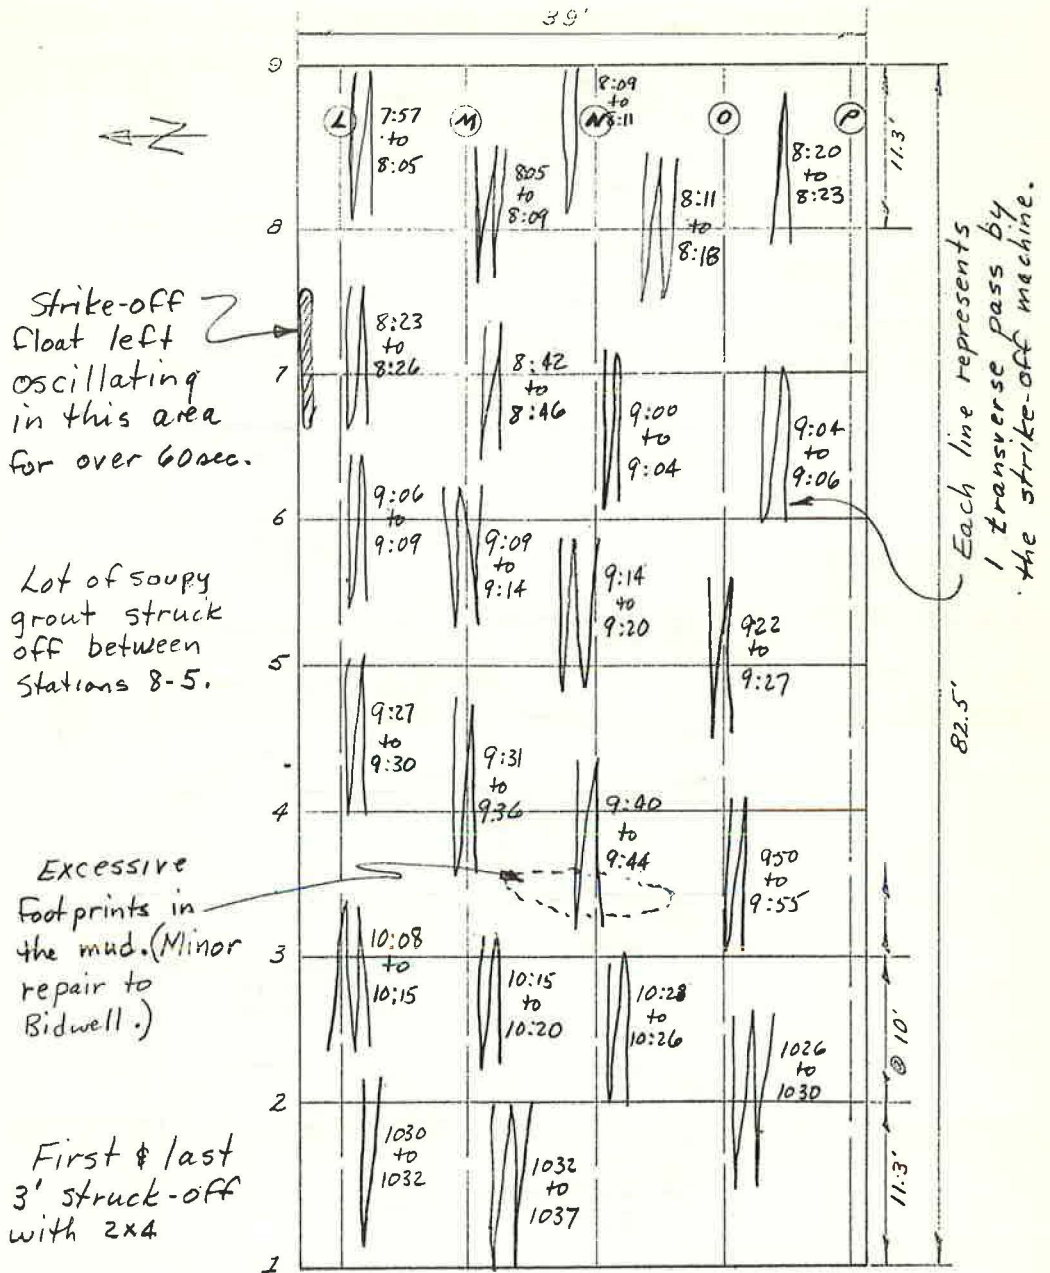 39'
9
L
M
N
O
P
7:57
to
8:05
805
to
8:09
8:09
to
8:11
8:11
to
8:18
8:20
to
8:23
11.3'
N
8
Strike-off
float left
oscillating
in this area
for over 60sec.
8:23
to
8:26
7
8:42
to
8:46
9:00
to
9:04
9:04
to
9:06
Each line represents
1 transverse pass by
the strike-off machine.
9:06
to
9:09
6
9:09
to
9:14
9:14
to
9:20
922
to
9:27
Lot of soupy
grout struck
off between
Stations 8-5.
5
82.5'
9:27
to
9:30
9:31
to
936
4
9:40
to
9:44
950
to
9:55
Excessive
Footprints in
the mud. (Minor
repair to
Bidwell.)
3
10:08
to
10:15
10:15
to
10:20
10:23
to
10:26
1026
to
1030
@ 10'
2
First & last
3' struck-off
with 2x4
1030
to
1032
1032
to
1037
11.3'
1